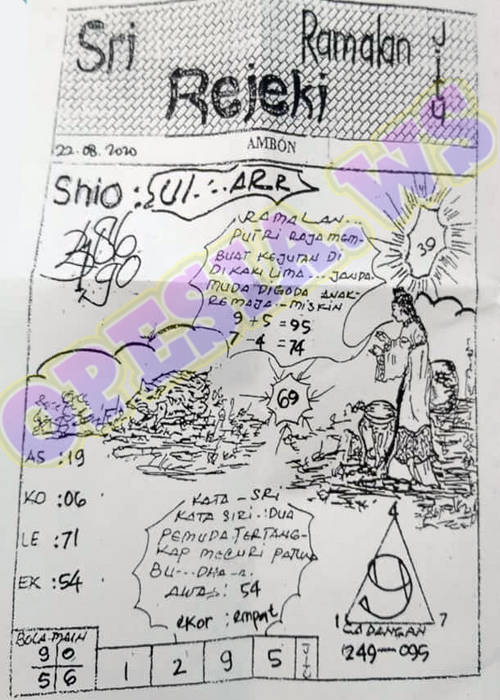 Sri Ramalan JITU
Rejeki
22.08.2020
AMBON
Shio :
RAMALAN...
PUTRI RAJA MEM-
BUAT KEJUTAN DI
DI KAKI LIMA... JANDA
MUDA DIGODA ANAK-
REMAJA.-MISKIN
9 + 5 = 95
7 - 4 = 74
39
69
OPESIA.WS
AS : 19
KO : 06
LE : 71
EK : 54
KATA - SRI
KATA SIRI.:DUA
PEMUDA TERTANG-
KAP MECURI PATUNG
BU...DHA
AWAS: 54
ekor : empat
4
9
1
7
CADANGAN
249-095
BOLA MAIN
9 0
5 6
1 2 9 5 JITU